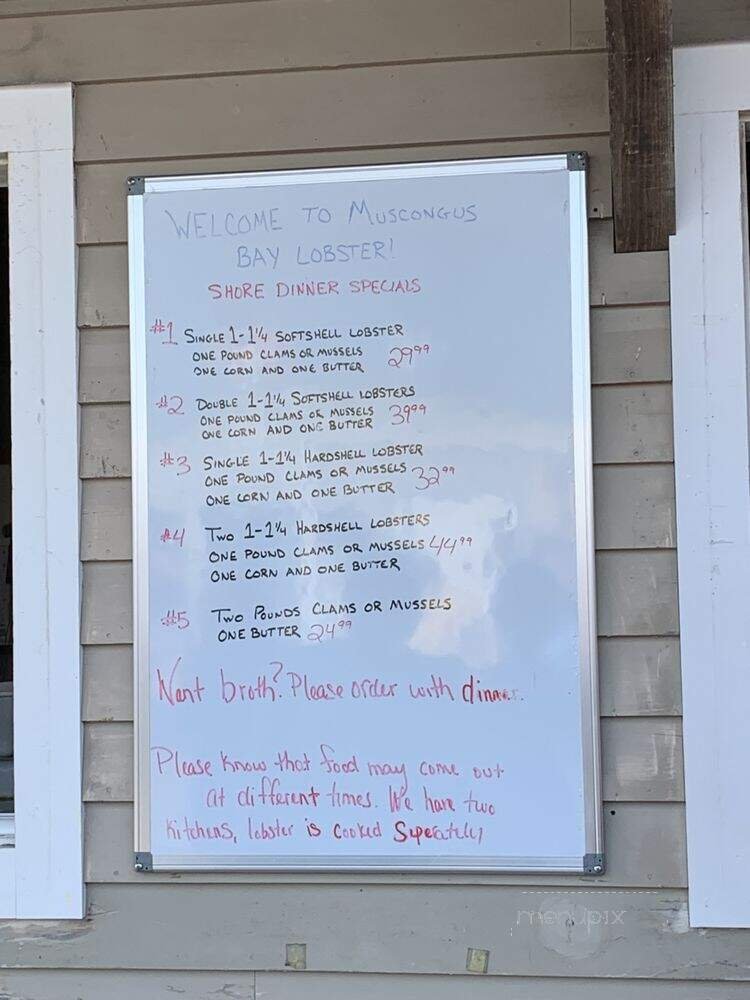 WELCOME TO MUSCONGUS
BAY LOBSTER!
SHORE DINNER SPECIALS
#1 SINGLE 1-1¼ SOFTSHELL LOBSTER
ONE POUND CLAMS OR MUSSELS
ONE CORN AND ONE BUTTER 29⁹⁹
#2 DOUBLE 1-1¼ SOFTSHELL LOBSTERS
ONE POUND CLAMS OR MUSSELS 39⁹⁹
ONE CORN AND ONE BUTTER
#3 SINGLE 1-1¼ HARDSHELL LOBSTER
ONE POUND CLAMS OR MUSSELS 32⁹⁹
ONE CORN AND ONE BUTTER
#4 TWO 1-1¼ HARDSHELL LOBSTERS
ONE POUND CLAMS OR MUSSELS 44⁹⁹
ONE CORN AND ONE BUTTER
#5 TWO POUNDS CLAMS OR MUSSELS
ONE BUTTER 24⁹⁹
Want broth? Please order with dinner.
Please know that food may come out
at different times. We have two
kitchens, lobster is cooked Seperately
menupix